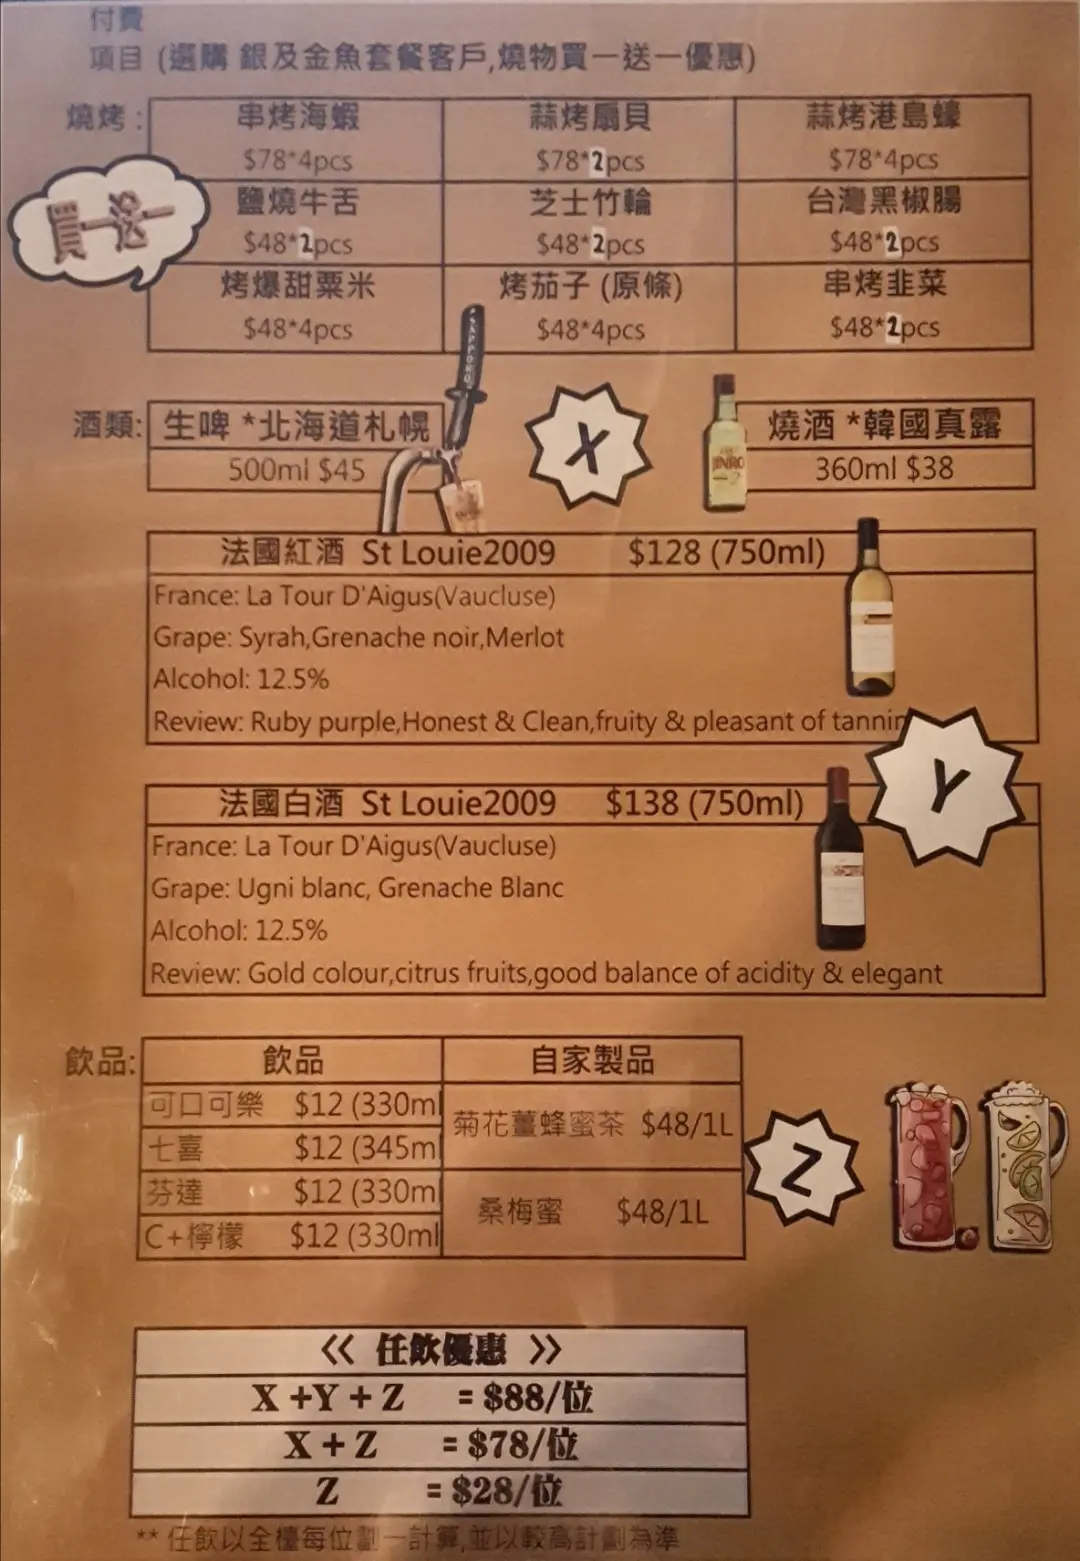 付費
項目 (選購 銀及金魚套餐客戶,燒物買一送一優惠)
燒烤 :
買一送一
串烤海蝦 蒜烤扇貝 蒜烤港島蠔
$78*4pcs $78*2pcs $78*4pcs
鹽燒牛舌 芝士竹輪 台灣黑椒腸
$48*2pcs $48*2pcs $48*2pcs
烤爆甜粟米 烤茄子 (原條) 串烤韭菜
$48*4pcs $48*4pcs $48*2pcs
SAPPORO
酒類: 生啤 *北海道札幌 X 燒酒 *韓國真露
500ml $45 JINRO 360ml $38
法國紅酒 St Louie2009 $128 (750ml)
France: La Tour D'Aigus(Vaucluse)
Grape: Syrah,Grenache noir,Merlot
Alcohol: 12.5%
Review: Ruby purple,Honest & Clean,fruity & pleasant of tannin
Y
法國白酒 St Louie2009 $138 (750ml)
France: La Tour D'Aigus(Vaucluse)
Grape: Ugni blanc, Grenache Blanc
Alcohol: 12.5%
Review: Gold colour,citrus fruits,good balance of acidity & elegant
飲品: 飲品 自家製品
可口可樂 $12 (330ml
菊花薑蜂蜜茶 $48/1L
七喜 $12 (345ml
Z
芬達 $12 (330ml
桑梅蜜 $48/1L
C+檸檬 $12 (330ml
<< 任飲優惠 >>
X +Y + Z = $88/位
X + Z = $78/位
Z = $28/位
** 任飲以全檯每位劃一計算,並以較高計劃為準